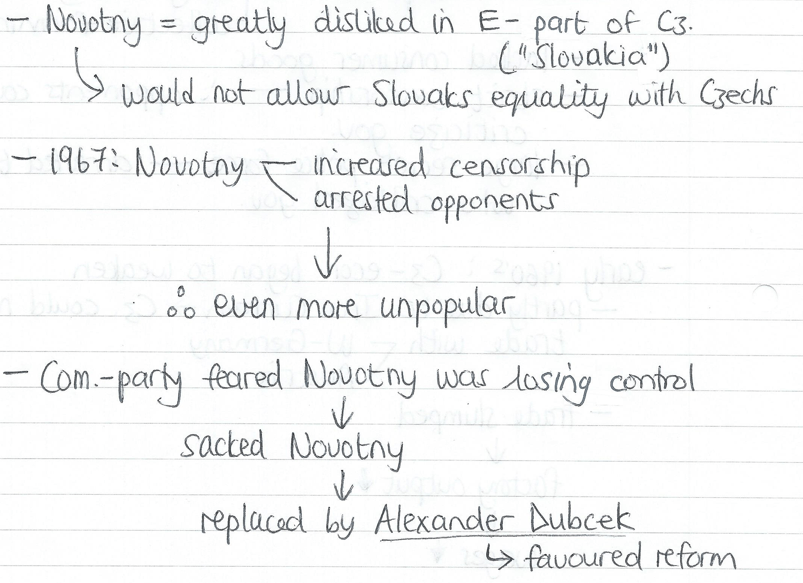 – Novotny = greatly disliked in E- part of Cz.
("Slovakia")
↳ would not allow Slovaks equality with Czechs
– 1967: Novotny – increased censorship
arrested opponents
↓
∴ even more unpopular
– Com.-party feared Novotny was losing control
↓
sacked Novotny
↓
replaced by Alexander Dubcek
↳ favoured reform